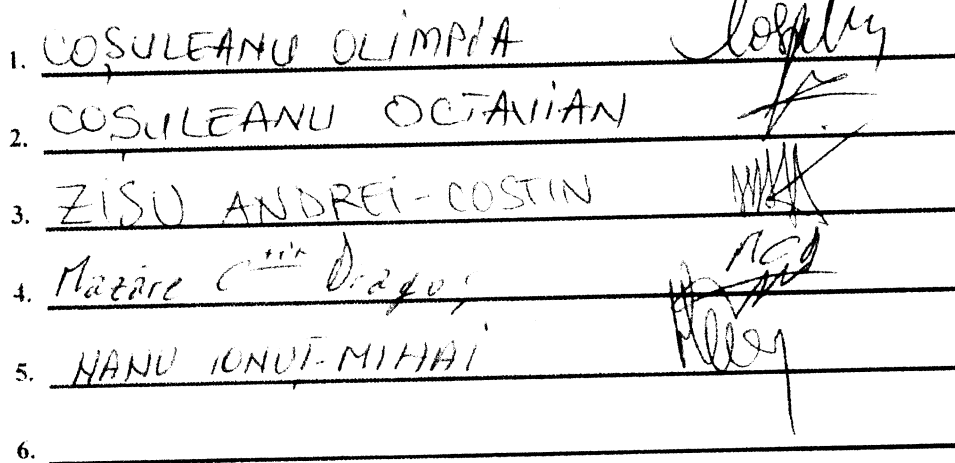 1. COȘULEANU OLIMPIA
2. COȘULEANU OCTAVIAN
3. ZISU ANDREI-COSTIN
4. Mazăre C^tin Dragoș
5. NANU IONUȚ-MIHAI
6.